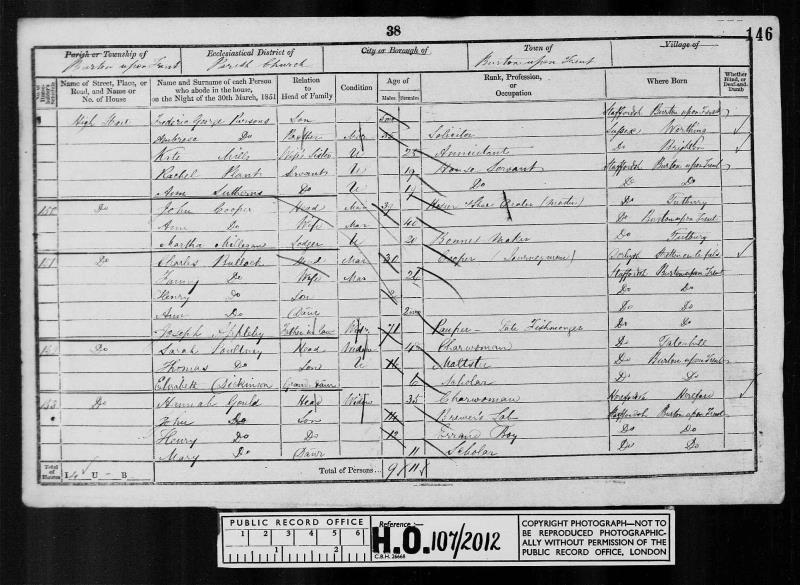 38
146
Parish or Township of Ecclesiastical District of City or Borough of Town of Village of
Burton upon Trent Parish Church Burton upon Trent
Name of Street, Place, or Road, and Name or No. of House
Name and Surname of each Person who abode in the house, on the Night of the 30th March, 1851
Relation to Head of Family
Condition
Age of
Males Females
Rank, Profession, or Occupation
Where Born
Whether Blind, or Deaf-and-Dumb
High Street Frederic George Parsons Son Staffordsh Burton upon Trent
Ambrose Do Brother Mar Solicitor Sussex Worthing
Kate Mills Wife's Sister U 25 Annuitant Do Brighton
Rachel Plant Servant U 19 House Servant Staffordsh Burton upon Trent
Ann Do U 19 Do Do Do
Do John Cooper Head Mar 39 Shoe Dealer (Master) Do Tutbury
Ann Do Wife Mar 40 Do Burton upon Trent
Martha Lodger U 20 Bonnet Maker Do Tutbury
151 Do Charles Bullock Head Mar 30 Cooper (Journeyman)
Fanny Do Wife Mar 26 Staffordsh Burton upon Trent
Henry Do Son 2 Do Do
Ann Do Daur Do Do
Joseph Father in law Widr 71 Pauper - Late Fishmonger Do Do
152 Do Sarah Poultney Head Widow 48 Charwoman Do Tatenhill
Thomas Do Son U Maltster Do Burton upon Trent
Elizabeth Dickinson Grand Daur 6 Scholar Do Do
153 Do Hannah Gould Head Widow 35 Charwoman Herefordsh Hereford
John Do Son 14 Brewer's Lab Staffordsh Burton upon Trent
Henry Do Do 12 Errand Boy Do Do
Mary Do Daur 11 Scholar Do Do
Total of Houses I 4 U - B - Total of Persons... 9 11
PUBLIC RECORD OFFICE
1 2 3 4 5 6
1 2
Reference:-
H.O. 107/2012
C.B.H. 26668
COPYRIGHT PHOTOGRAPH—NOT TO BE REPRODUCED PHOTOGRAPHICALLY WITHOUT PERMISSION OF THE PUBLIC RECORD OFFICE, LONDON